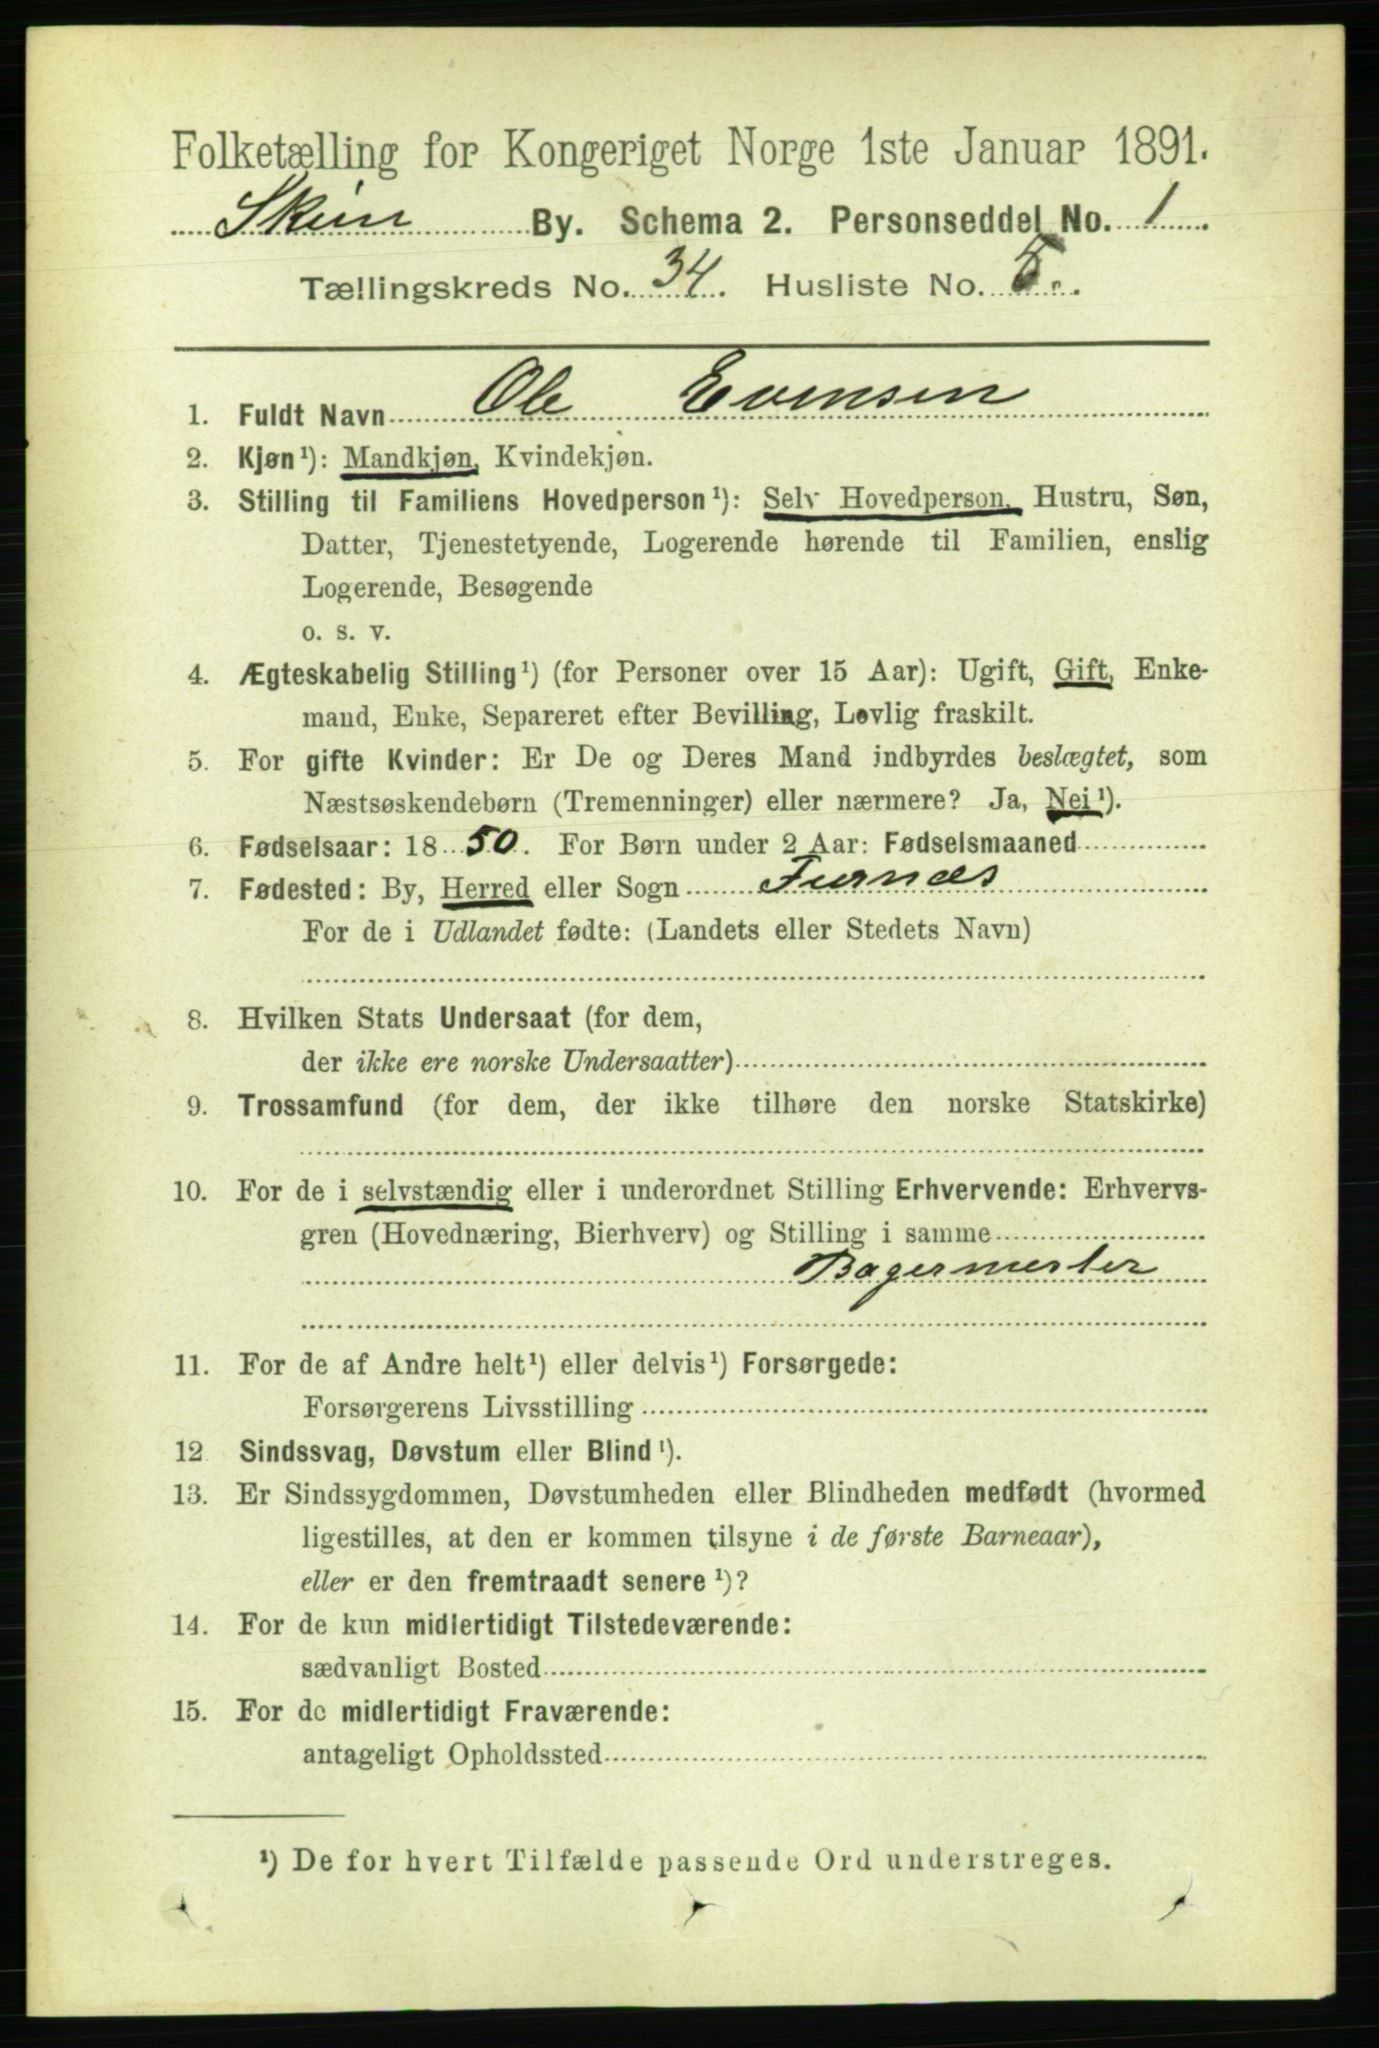 Folketælling for Kongeriget Norge 1ste Januar 1891.
Skien By. Schema 2. Personseddel No. 1
Tællingskreds No. 34. Husliste No. 5.
1. Fuldt Navn Ole Evensen
2. Kjøn¹): Mandkjøn, Kvindekjøn.
3. Stilling til Familiens Hovedperson¹): Selv Hovedperson, Hustru, Søn,
Datter, Tjenestetyende, Logerende hørende til Familien, enslig
Logerende, Besøgende
o. s. v.
4. Ægteskabelig Stilling¹) (for Personer over 15 Aar): Ugift, Gift, Enke-
mand, Enke, Separeret efter Bevilling, Lovlig fraskilt.
5. For gifte Kvinder: Er De og Deres Mand indbyrdes beslægtet, som
Næstsøskendebørn (Tremenninger) eller nærmere? Ja, Nei¹).
6. Fødselsaar: 1850. For Børn under 2 Aar: Fødselsmaaned
7. Fødested: By, Herred eller Sogn Furnæs
For de i Udlandet fødte: (Landets eller Stedets Navn)
8. Hvilken Stats Undersaat (for dem,
der ikke ere norske Undersaatter)
9. Trossamfund (for dem, der ikke tilhøre den norske Statskirke)
10. For de i selvstændig eller i underordnet Stilling Erhvervende: Erhvervs-
gren (Hovednæring, Bierhverv) og Stilling i samme
Bagermester
11. For de af Andre helt¹) eller delvis¹) Forsørgede:
Forsørgerens Livsstilling
12 Sindssvag, Døvstum eller Blind¹).
13. Er Sindssygdommen, Døvstumheden eller Blindheden medfødt (hvormed
ligestilles, at den er kommen tilsyne i de første Barneaar),
eller er den fremtraadt senere¹)?
14. For de kun midlertidigt Tilstedeværende:
sædvanligt Bosted
15. For de midlertidigt Fraværende:
antageligt Opholdssted
¹) De for hvert Tilfælde passende Ord understreges.